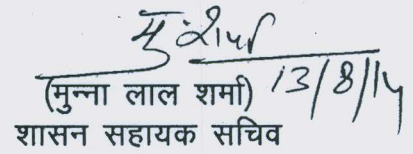 मु. शर्मा
(मुन्ना लाल शर्मा) 13/8/14
शासन सहायक सचिव